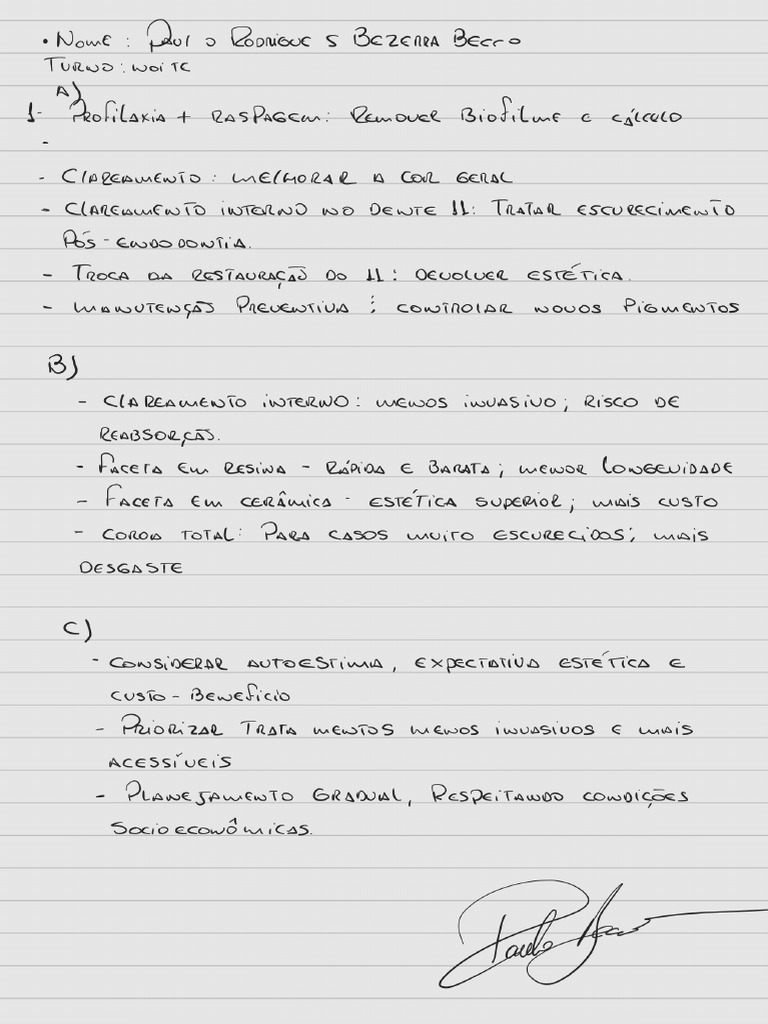 • Nome: Paulo Rodrigues Bezerra Becco
Turno: noite
A)
1- Profilaxia + raspagem: Remover Biofilme e cálculo
-
- Clareamento: melhorar a cor geral
- Clareamento interno no dente 11: Tratar escurecimento
Pós-endodontia.
- Troca da restauração do 11: Devolver estética.
- manutenção Preventiva: controlar novos pigmentos
B)
- Clareamento interno: menos invasivo; risco de
reabsorção.
- Faceta em resina - rápida e barata; menor longevidade
- Faceta em cerâmica - estética superior; mais custo
- coroa total: Para casos muito escurecidos; mais
desgaste
C)
- Considerar autoestima, expectativa estética e
custo-Beneficio
- Priorizar Tratamentos menos invasivos e mais
acessíveis
- Planejamento Gradual, Respeitando condições
Socioeconômicas.